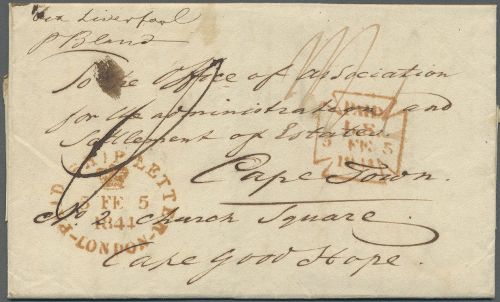 via Liverpool
p Bland
To the Office of Association
for the administration and
Settlement of Estates
Cape Town.
No. 2 Church Square
Cape Good Hope.
PAID SHIP LETTER
FE 5
1844
LONDON
PAID
5 FE 5
1844